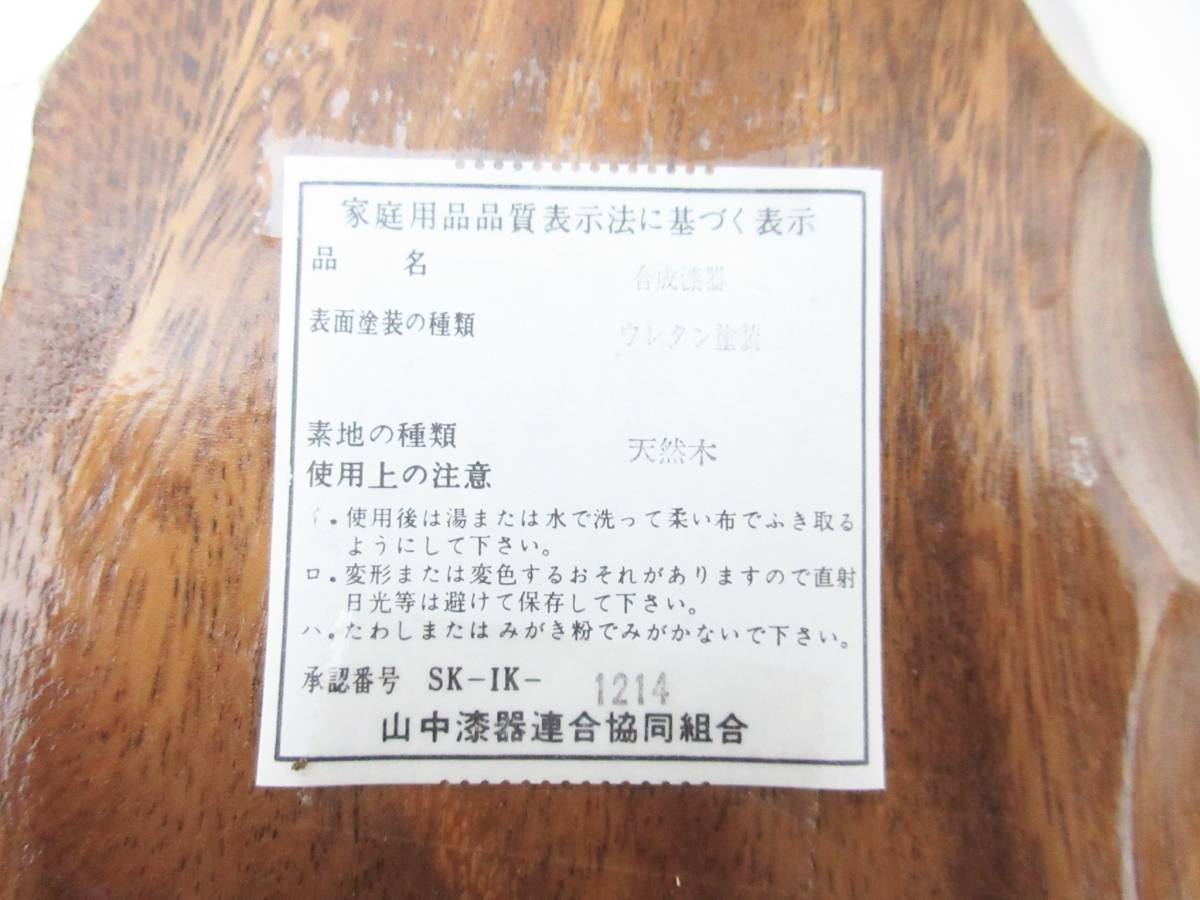 家庭用品品質表示法に基づく表示
品名 合成漆器
表面塗装の種類 ウレタン塗装
素地の種類 天然木
使用上の注意
イ.使用後は湯または水で洗って柔い布でふき取る
ようにして下さい。
ロ.変形または変色するおそれがありますので直射
日光等は避けて保存して下さい。
ハ.たわしまたはみがき粉でみがかないで下さい。
承認番号 SK-IK-1214
山中漆器連合協同組合